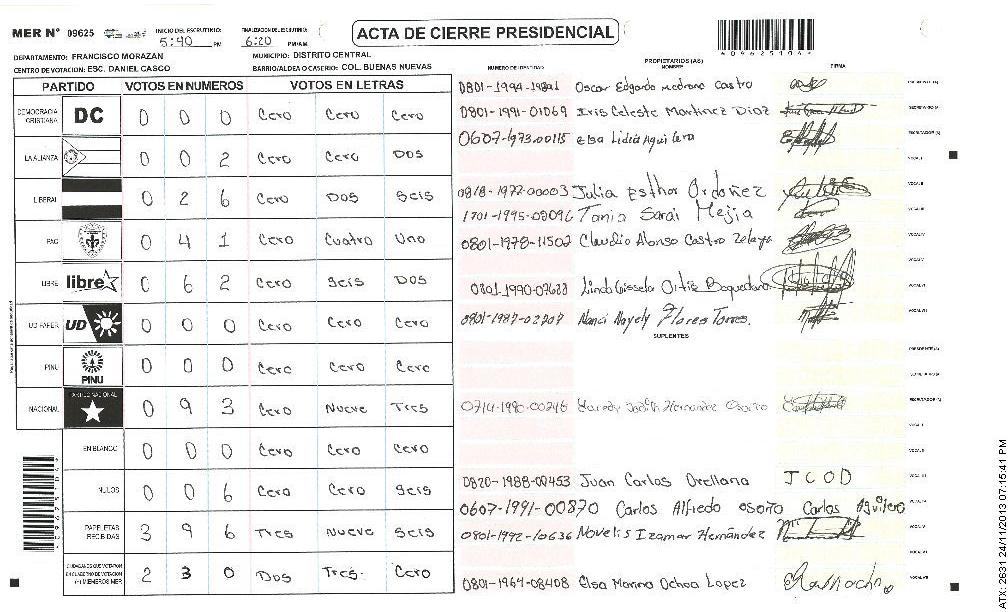 MER Nº 09625
INICIO DEL ESCRUTINIO: 5:40 PM
FINALIZACION DEL ESCRUTINIO: 6:20 PM/AM
ACTA DE CIERRE PRESIDENCIAL
DEPARTAMENTO: FRANCISCO MORAZAN
MUNICIPIO: DISTRITO CENTRAL
CENTRO DE VOTACION: ESC. DANIEL CASCO
BARRIO/ALDEA O CASERIO: COL. BUENAS NUEVAS
PARTIDO VOTOS EN NUMEROS VOTOS EN LETRAS
DEMOCRACIA CRISTIANA DC 0 0 0 Cero Cero Cero
LA ALIANZA 0 0 2 Cero Cero Dos
LIBERAL 0 2 6 Cero Dos Seis
PAC 0 4 1 Cero Cuatro Uno
LIBRE libre 0 6 2 Cero Seis Dos
UD FAPER UD 0 0 0 Cero Cero Cero
PINU PINU 0 0 0 Cero Cero Cero
NACIONAL PARTIDO NACIONAL 0 9 3 Cero Nueve Tres
EN BLANCO 0 0 0 Cero Cero Cero
NULOS 0 0 6 Cero Cero Seis
PAPELETAS RECIBIDAS 3 9 6 Tres Nueve Seis
CIUDADANOS QUE VOTARON EN CUADERNO DE VOTACION (+) MIEMBROS MER 2 3 0 Dos Tres Cero
NUMERO DE IDENTIDAD
PROPIETARIOS (AS)
NOMBRE
FIRMA
Oscar Edgardo Medrano Castro
0801-1991-01069 Iris Celeste Martinez Diaz
0607-1973-00115 elsa Lidia Aguilera
0818-1977-00003 Julia Esther Ordoñez
1701-1995-03096 Tania Sarai Mejia
0801-1978-11502 Claudio Alonso Castro Zelaya
0801-1990-07688 Linda Gissela Ortiz Boquedano
0801-1987-02207 Nanci Nayely Flores Torres.
SUPLENTES
0714-1990-00246 Judith Hernandez Osorto
0820-1988-00453 Juan Carlos Orellana JCOD
0607-1991-00870 Carlos Alfredo osorto Carlos Aguilera
0801-1992-10636 Novelis Izamar Hernández
0801-1964-08408 Elsa Marina Ochoa Lopez
ATX: 2531 24/11/2013 07:15:41 PM